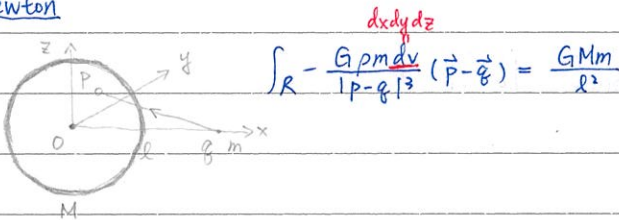 ewton
dxdydz
∫_R - Gρm dv / |p-q|³ (p⃗-q⃗) = GMm / ℓ²
z
y
P
O
ℓ
q m
x
M